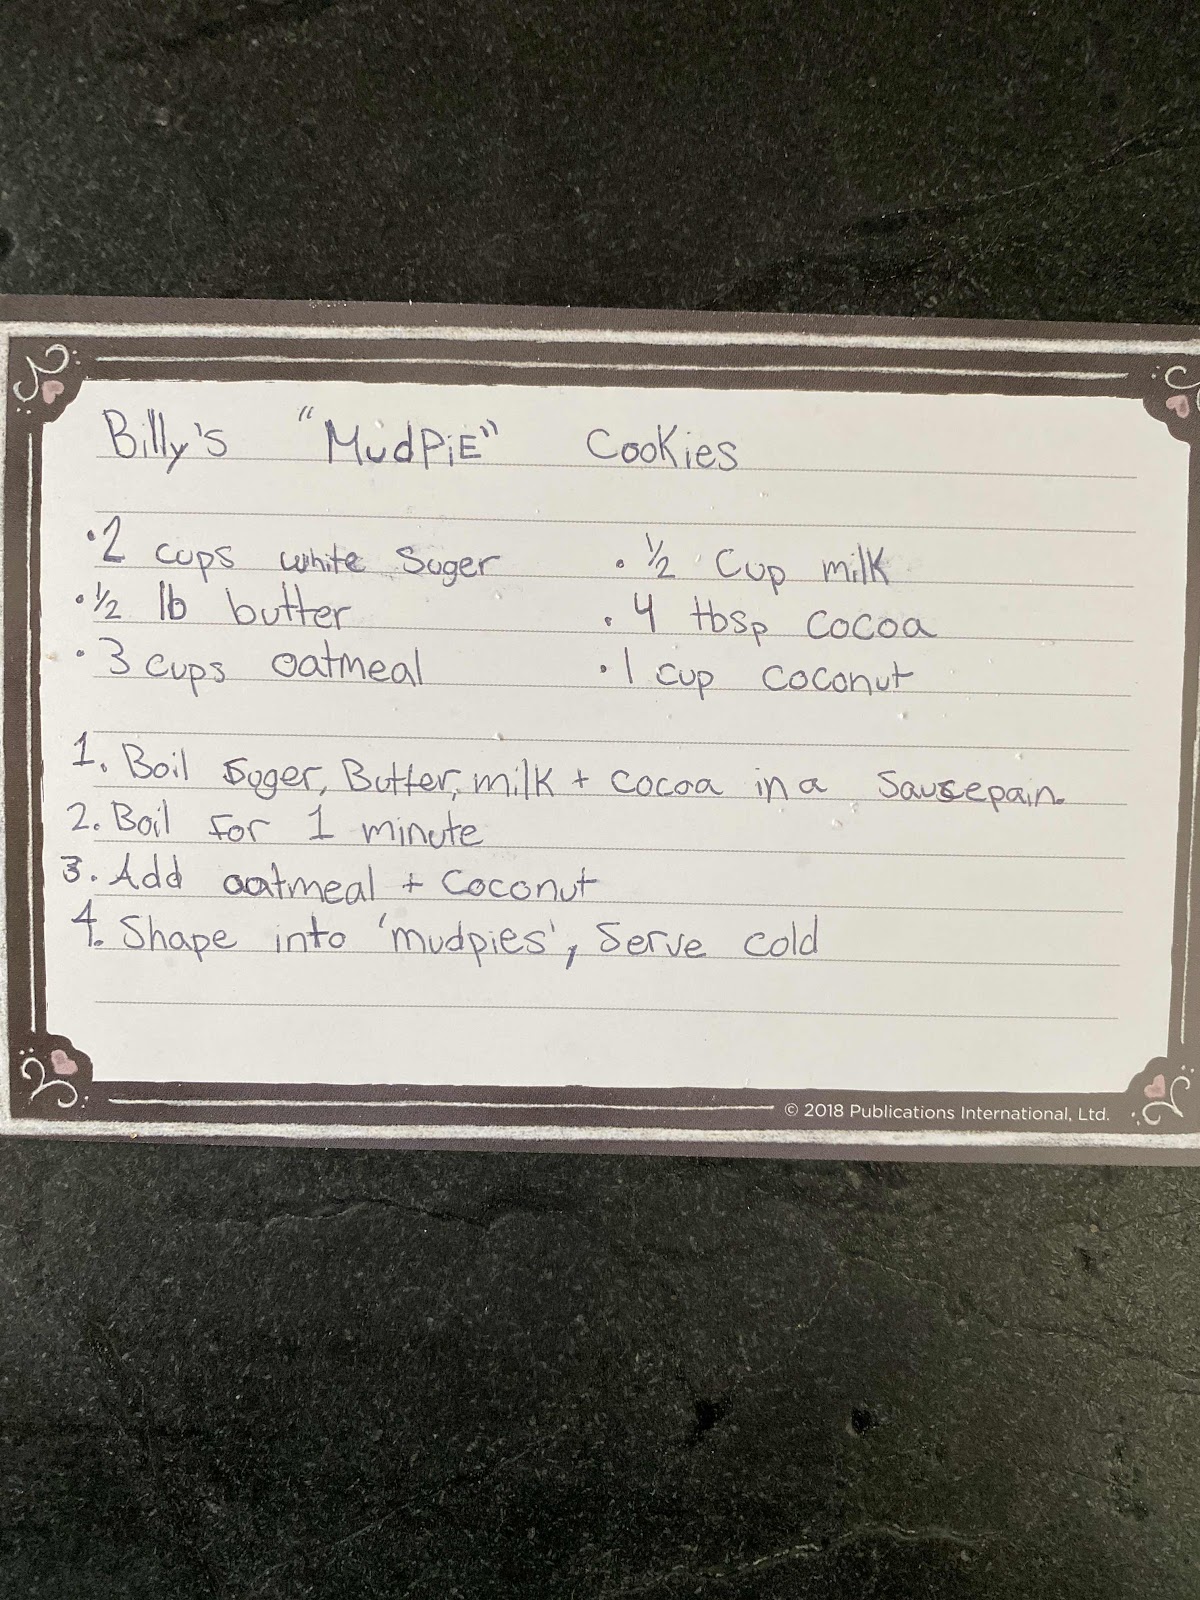 Billy's "MudPiE" Cookies
• 2 cups white Suger • ½ Cup milk
• ½ lb butter • 4 tbsp cocoa
• 3 cups oatmeal • 1 cup coconut
1. Boil Suger, Butter, milk + cocoa in a Sausepain.
2. Boil For 1 minute
3. Add oatmeal + Coconut
4. Shape into 'mudpies', Serve cold
© 2018 Publications International, Ltd.